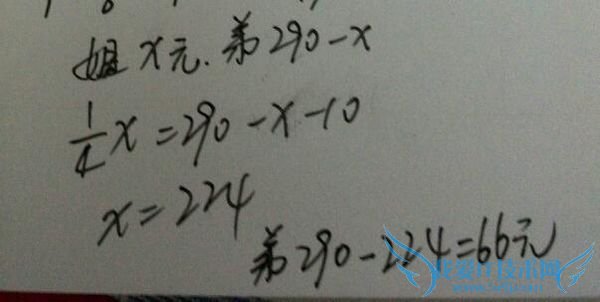 姐x元.弟290-x
1/4x=290-x-10
x=224
弟290-224=66元